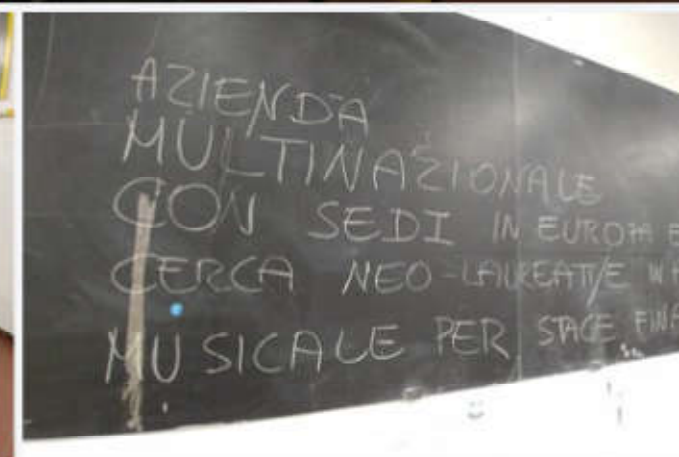 AZIENDA
MULTINAZIONALE
CON SEDI IN EUROPA E
CERCA NEO-LAUREATI/E IN
MUSICALE PER STAGE